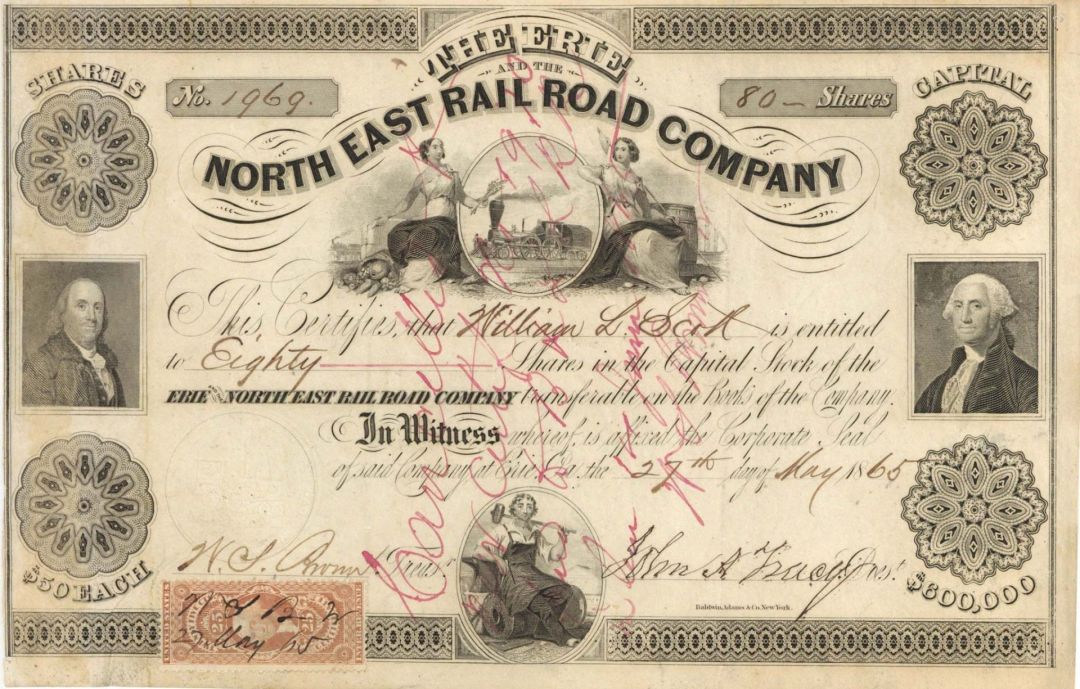 THE ERIE
AND THE
NORTH EAST RAIL ROAD COMPANY
SHARES
No. 1969.
80 — Shares
CAPITAL
This Certifies, that William L Scott is entitled
to Eighty Shares in the Capital Stock of the
ERIE and NORTH EAST RAIL ROAD COMPANY transferable on the Books of the Company.
In Witness whereof, is affixed the Corporate Seal
of said Company at Erie, Pa, the 27th day of May 1865
$50 EACH
Treasr.
John A Tracy Prest.
$600,000
Baldwin, Adams & Co. New York.
25
25
27 May 65